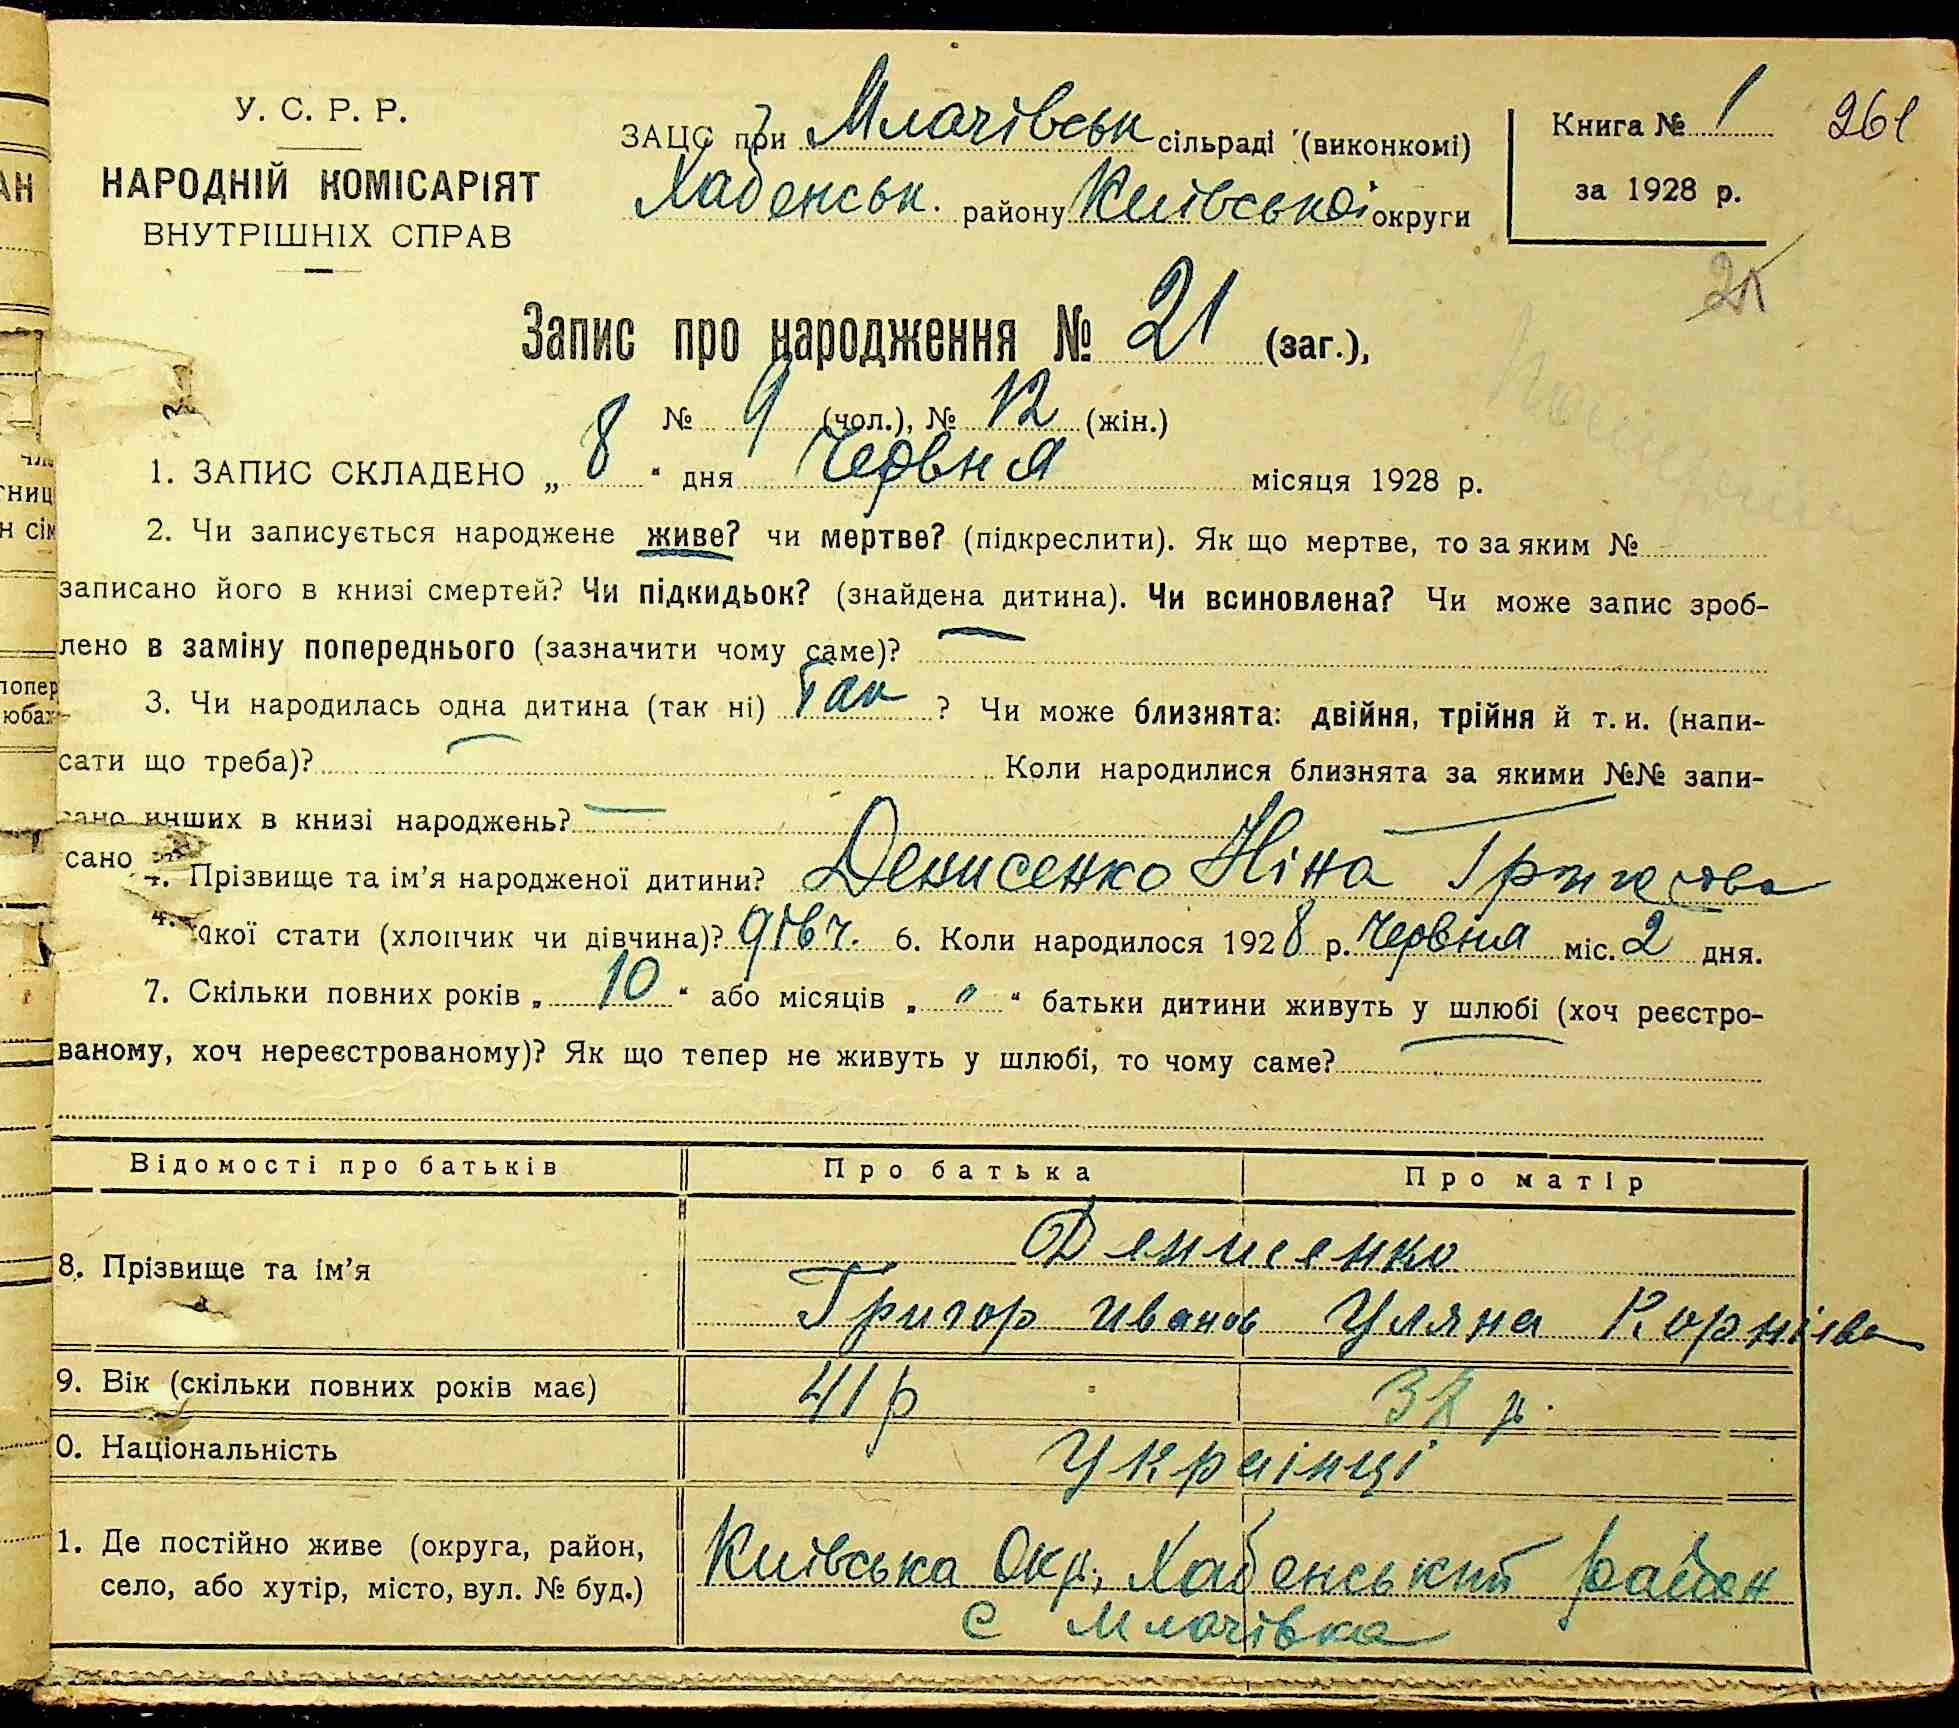 У. С. Р. Р.
НАРОДНІЙ КОМІСАРІЯТ
ВНУТРІШНІХ СПРАВ
ЗАЦС при Млачівськ сільраді (виконкомі)
Хабенськ. району Київської округи
Книга № 1
за 1928 р.
261
21
Запис про народження № 21 (заг.),
№ 9 (чол.), № 12 (жін.)
1. ЗАПИС СКЛАДЕНО „ 8 “ дня Червня місяця 1928 р.
2. Чи записується народжене живе? чи мертве? (підкреслити). Як що мертве, то за яким №
записано його в книзі смертей? Чи підкидьок? (знайдена дитина). Чи всиновлена? Чи може запис зроб-
лено в заміну попереднього (зазначити чому саме)? —
3. Чи народилась одна дитина (так ні) Так ? Чи може близнята: двійня, трійня й т. и. (напи-
сати що треба)? — Коли народилися близнята за якими №№ запи-
сано инших в книзі народжень? —
4. Прізвище та ім’я народженої дитини? Денисенко Ніна
якої стати (хлопчик чи дівчина)? дівч. 6. Коли народилося 1928 р. Червня міс. 2 дня.
7. Скільки повних років „ 10 “ або місяців „ " “ батьки дитини живуть у шлюбі (хоч реєстро-
ваному, хоч нереєстрованому)? Як що тепер не живуть у шлюбі, то чому саме? —
Відомості про батьків Про батька Про матір
8. Прізвище та ім’я Денисенко
Григор Иванов Уляна Корнієва
9. Вік (скільки повних років має) 41 р р.
0. Національність Українці
1. Де постійно живе (округа, район,
село, або хутір, місто, вул. № буд.)
Київська Окр, Хабенський район
с Млачівка